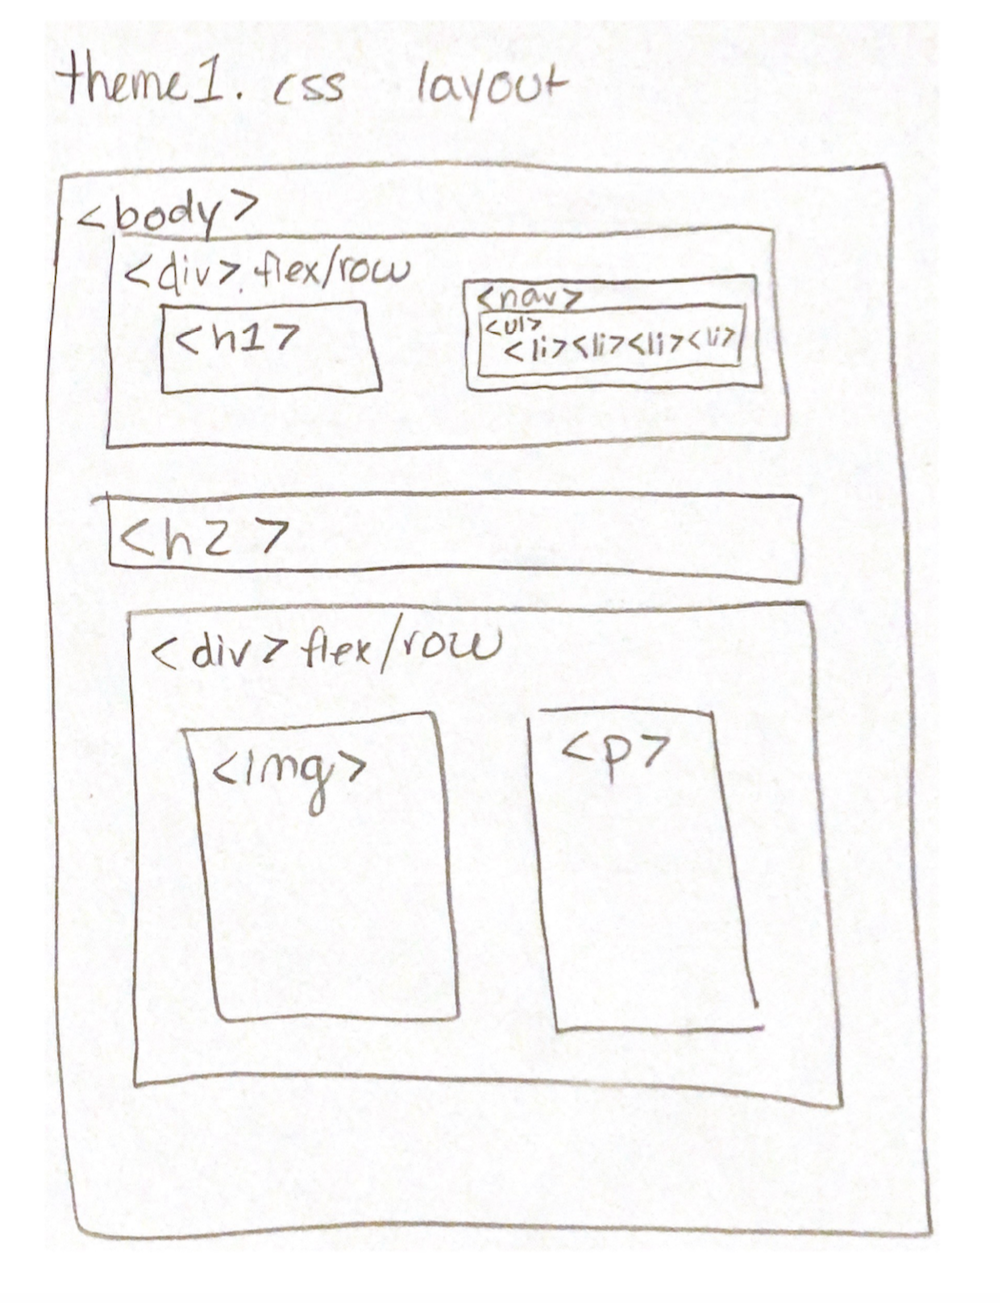 theme1.css layout
<body>
<div>.flex/row
<h1>
<nav>
<ul>
<li><li><li><li>
<h2>
<div>flex/row
<img>
<p>